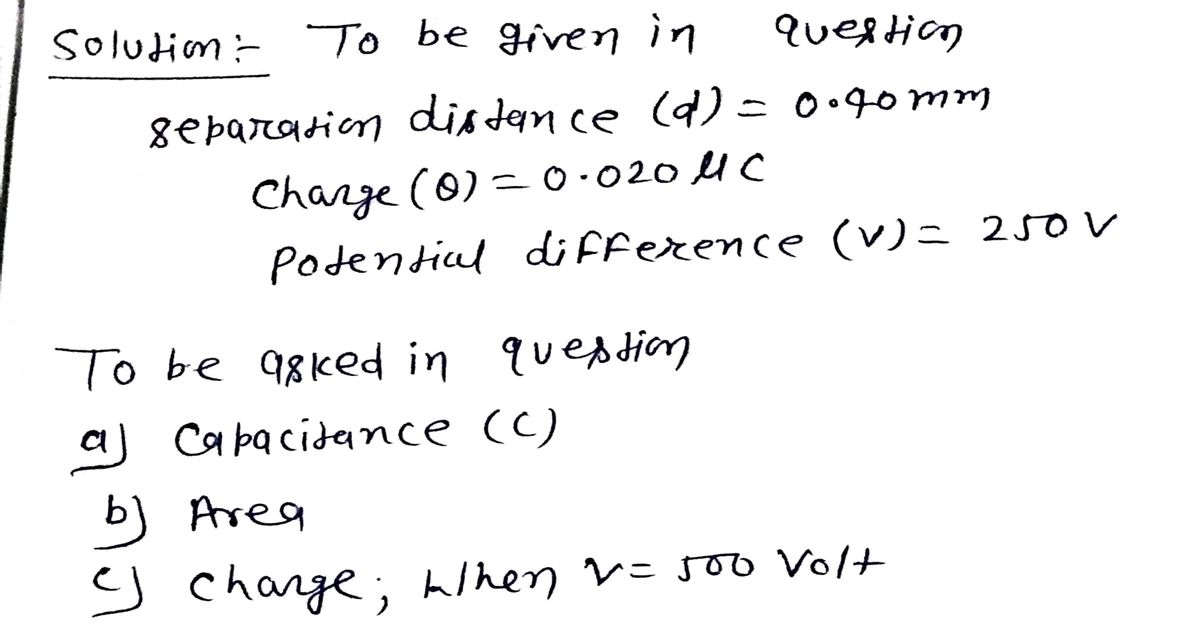 Solution :- To be given in question
separation distance (d) = 0.40 mm
Charge (Q) = 0.020 μC
Potential difference (V) = 250 V
To be asked in question
a) Capacitance (C)
b) Area
c) charge; When V = 500 Volt